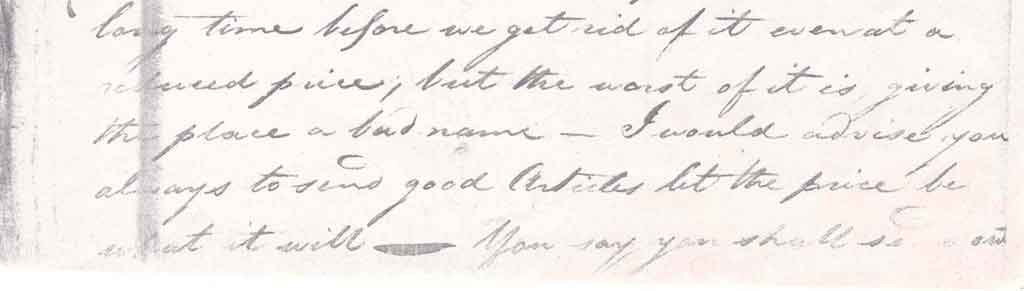 long time before we get rid of it even at a
reduced price, but the worst of it is, giving
the place a bad name — I would advise you
always to send good Articles let the price be
what it will — You say you shall